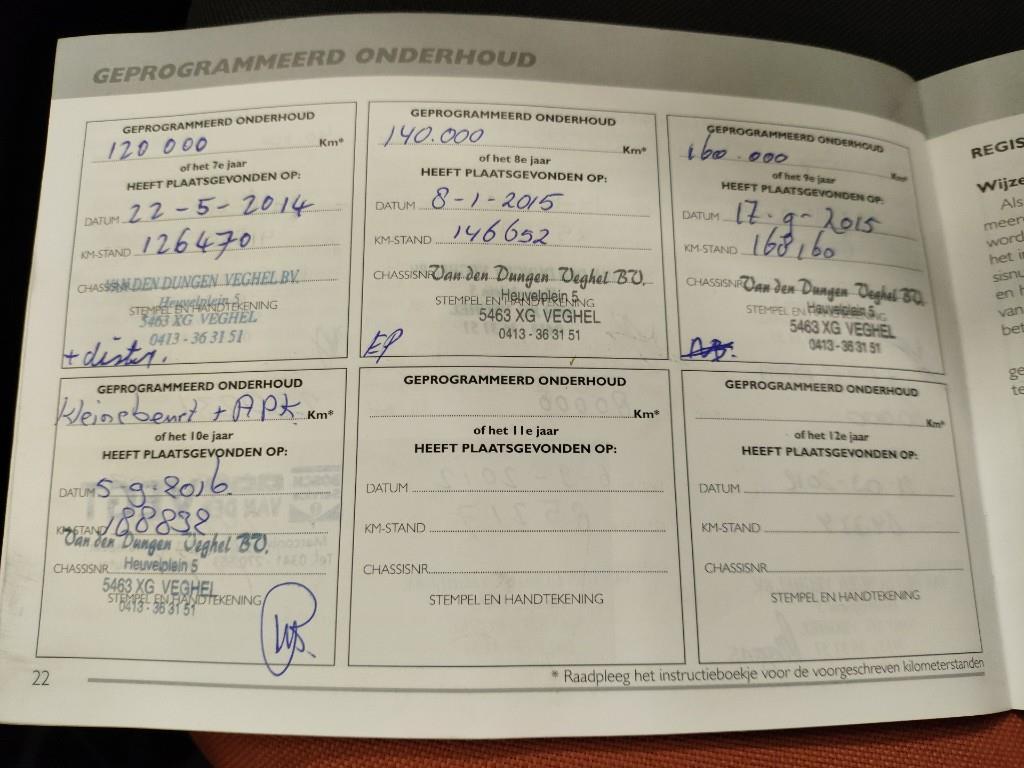 GEPROGRAMMEERD ONDERHOUD
GEPROGRAMMEERD ONDERHOUD
120 000 Km*
of het 7e jaar
HEEFT PLAATSGEVONDEN OP:
DATUM 22-5-2014
KM-STAND 126470
CHASSISNR
VAN DEN DUNGEN VEGHEL BV.
Heuvelplein 5
STEMPEL EN HANDTEKENING
5463 XG VEGHEL
0413 - 36 31 51
GEPROGRAMMEERD ONDERHOUD
140.000 Km*
of het 8e jaar
HEEFT PLAATSGEVONDEN OP:
DATUM 8-1-2015
KM-STAND 146652
CHASSISNR
Van den Dungen Veghel B.V.
Heuvelplein 5
STEMPEL EN HANDTEKENING
5463 XG VEGHEL
0413 - 36 31 51
EP
GEPROGRAMMEERD ONDERHOUD
160.000 Km*
of het 9e jaar
HEEFT PLAATSGEVONDEN OP:
DATUM 17-9-2015
KM-STAND 168160
CHASSISNR
Van den Dungen Veghel B.V.
Heuvelplein 5
STEMPEL EN HANDTEKENING
5463 XG VEGHEL
0413 - 36 31 51
GEPROGRAMMEERD ONDERHOUD
kleine beurt + APK Km*
of het 10e jaar
HEEFT PLAATSGEVONDEN OP:
DATUM 5-9-2016
KM-STAND 188832
Van den Dungen Veghel B.V.
CHASSISNR Heuvelplein 5
5463 XG VEGHEL
STEMPEL EN HANDTEKENING
0413 - 36 31 51
GEPROGRAMMEERD ONDERHOUD
Km*
of het 11e jaar
HEEFT PLAATSGEVONDEN OP:
DATUM
KM-STAND
CHASSISNR
STEMPEL EN HANDTEKENING
GEPROGRAMMEERD ONDERHOUD
Km*
of het 12e jaar
HEEFT PLAATSGEVONDEN OP:
DATUM
KM-STAND
CHASSISNR
STEMPEL EN HANDTEKENING
22
* Raadpleeg het instructieboekje voor de voorgeschreven kilometerstanden
REGIS
Wijze
Als
meer
word
het i
sisnu
en h
van
bet
ge
te